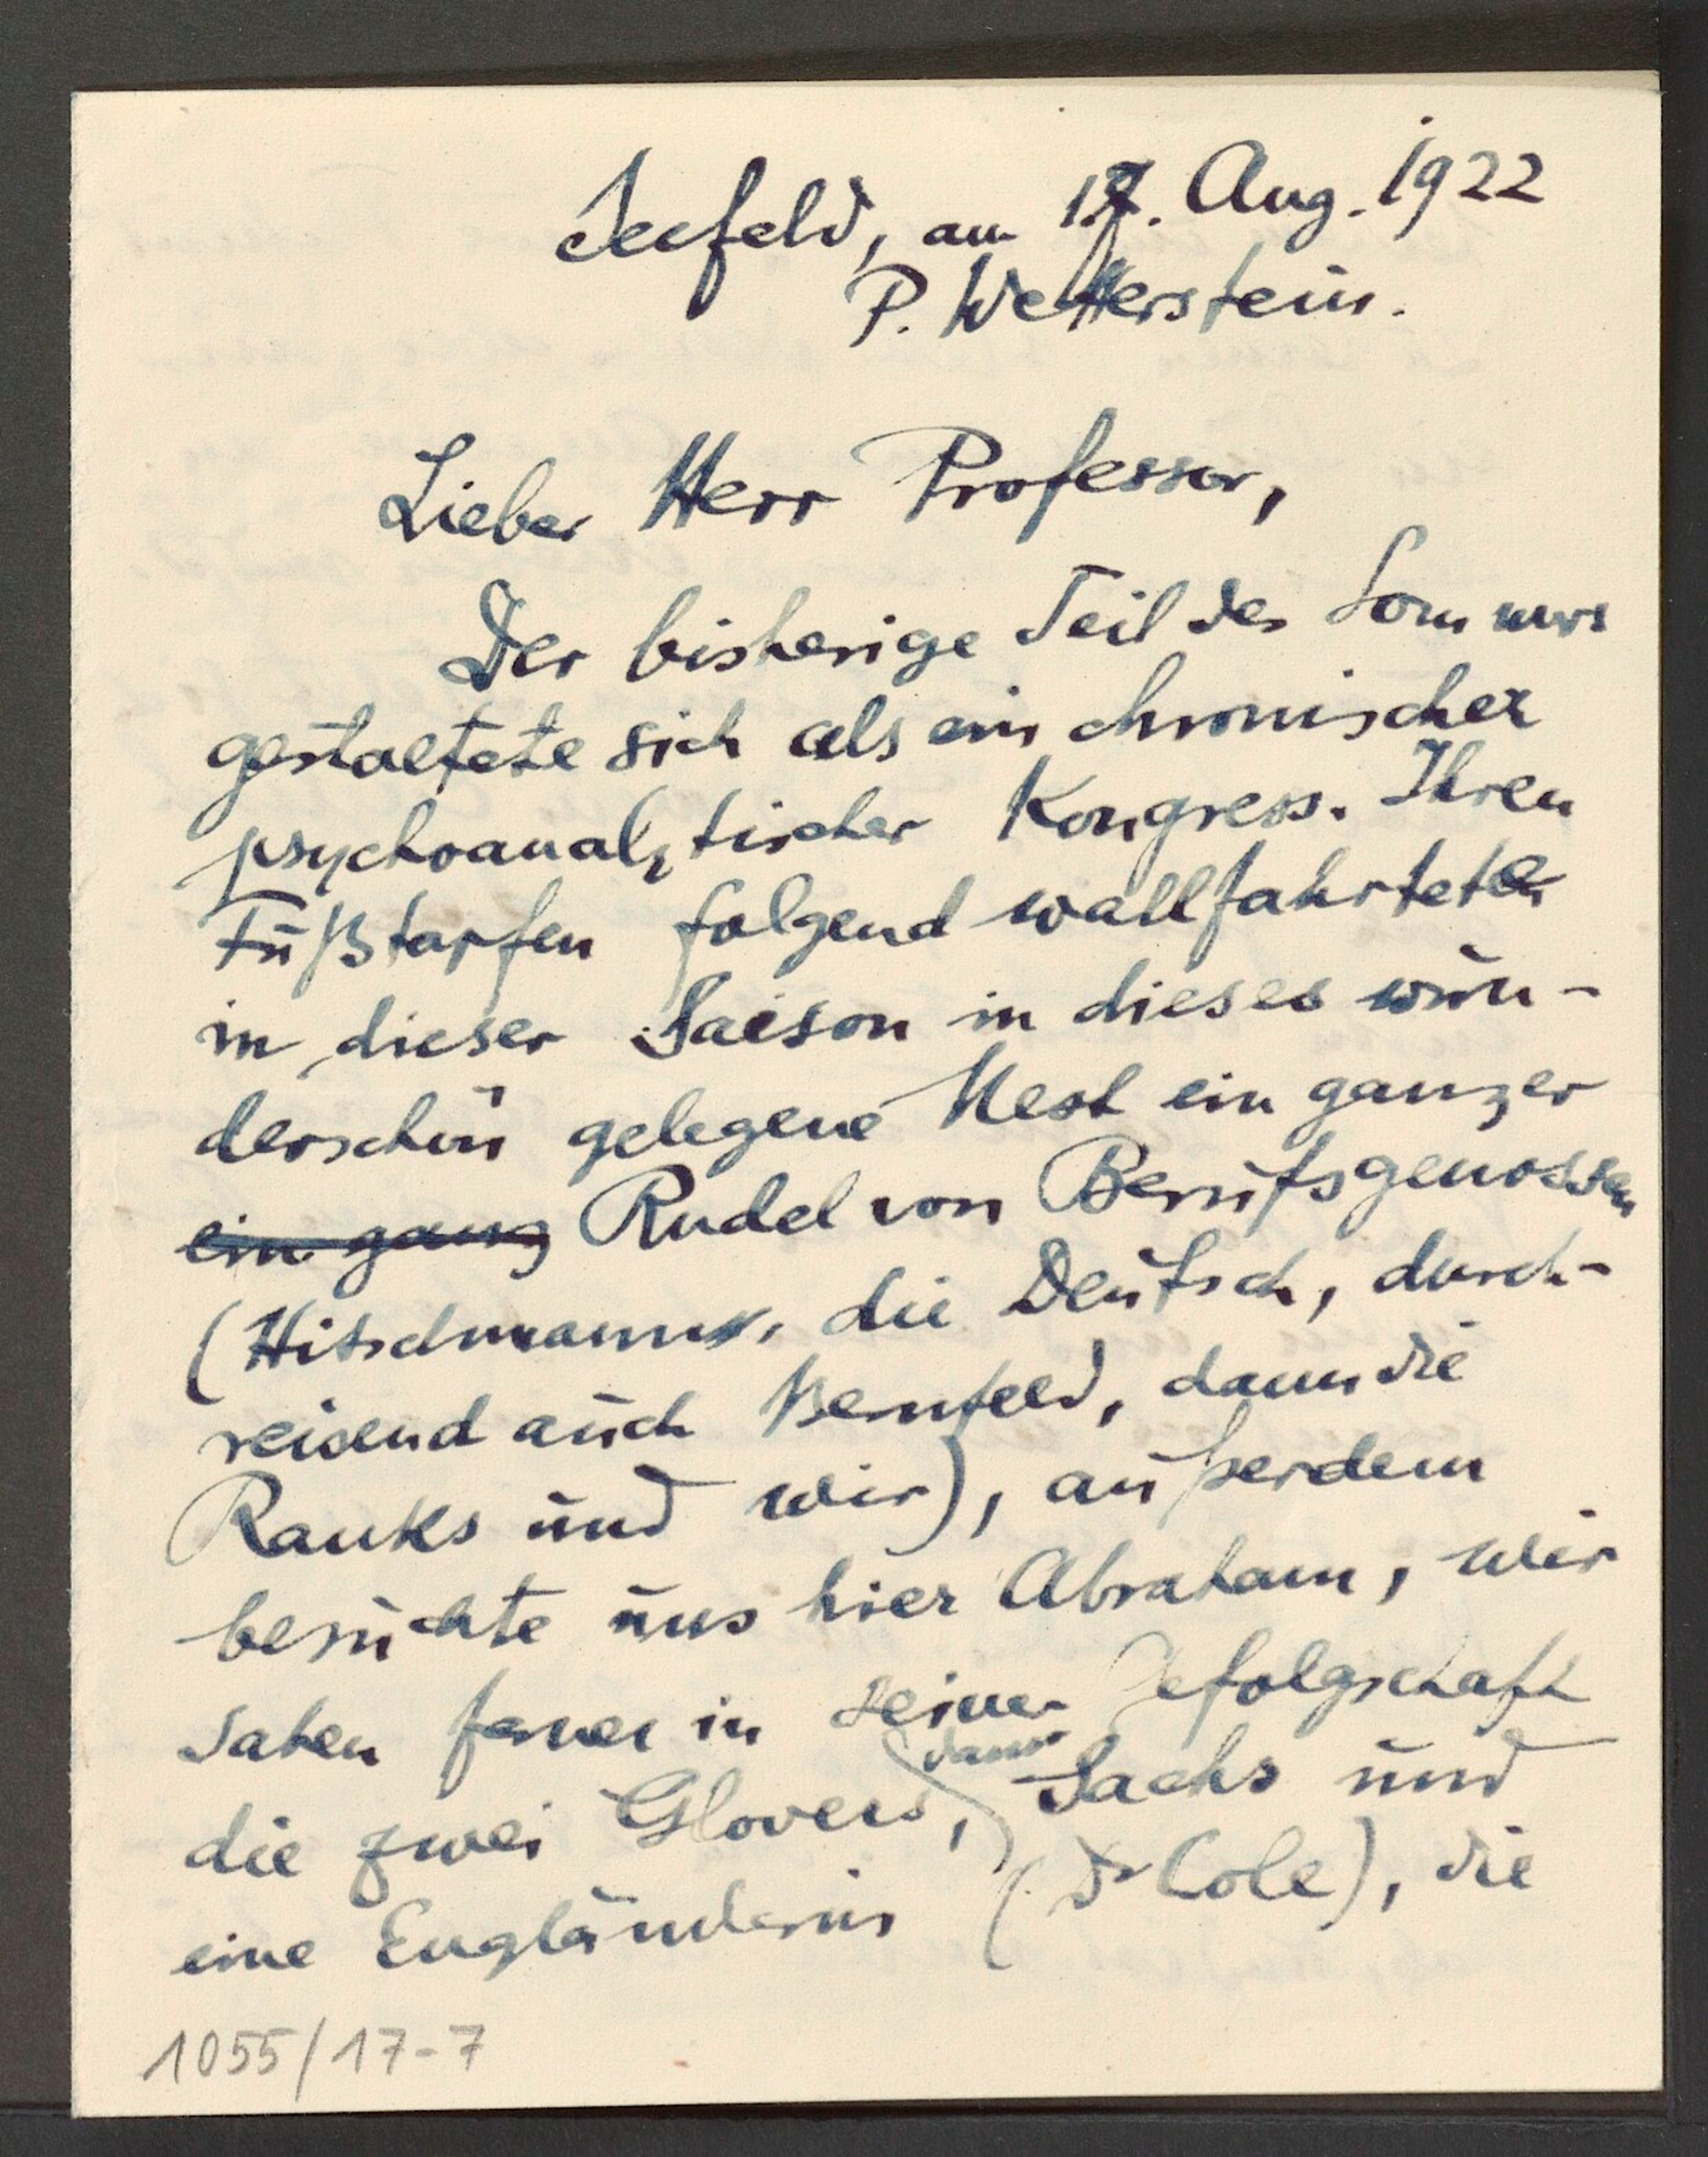 Seefeld, am 17. Aug. 1922
P. Wetterstein.
Lieber Herr Professor,
Der bisherige Teil des Sommers
gestaltete sich als ein chronischer
psychoanalytischer Kongress. Ihren
Fußtapfen folgend wallfahrtete
in dieser Saison in dieses wun-
derschön gelegene Nest ein ganzer
ein ganz Rudel von Berufsgenossen
(Hitschmann, die Deutsch, durch-
reisend auch Bernfeld, dann die
Ranks und wir), außerdem
besuchte uns hier Abraham, wir
sahen ferner in seiner Gefolgschaft
die zwei Glovers, dann Sachs und
eine Engländerin (Dr Cole), die
1055/17-7